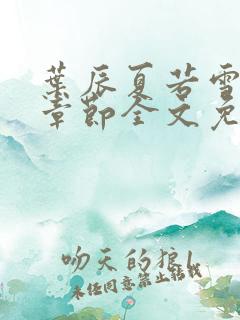 葉辰夏若雪
章節全文免
吻天的狼1
未经同意禁止转载